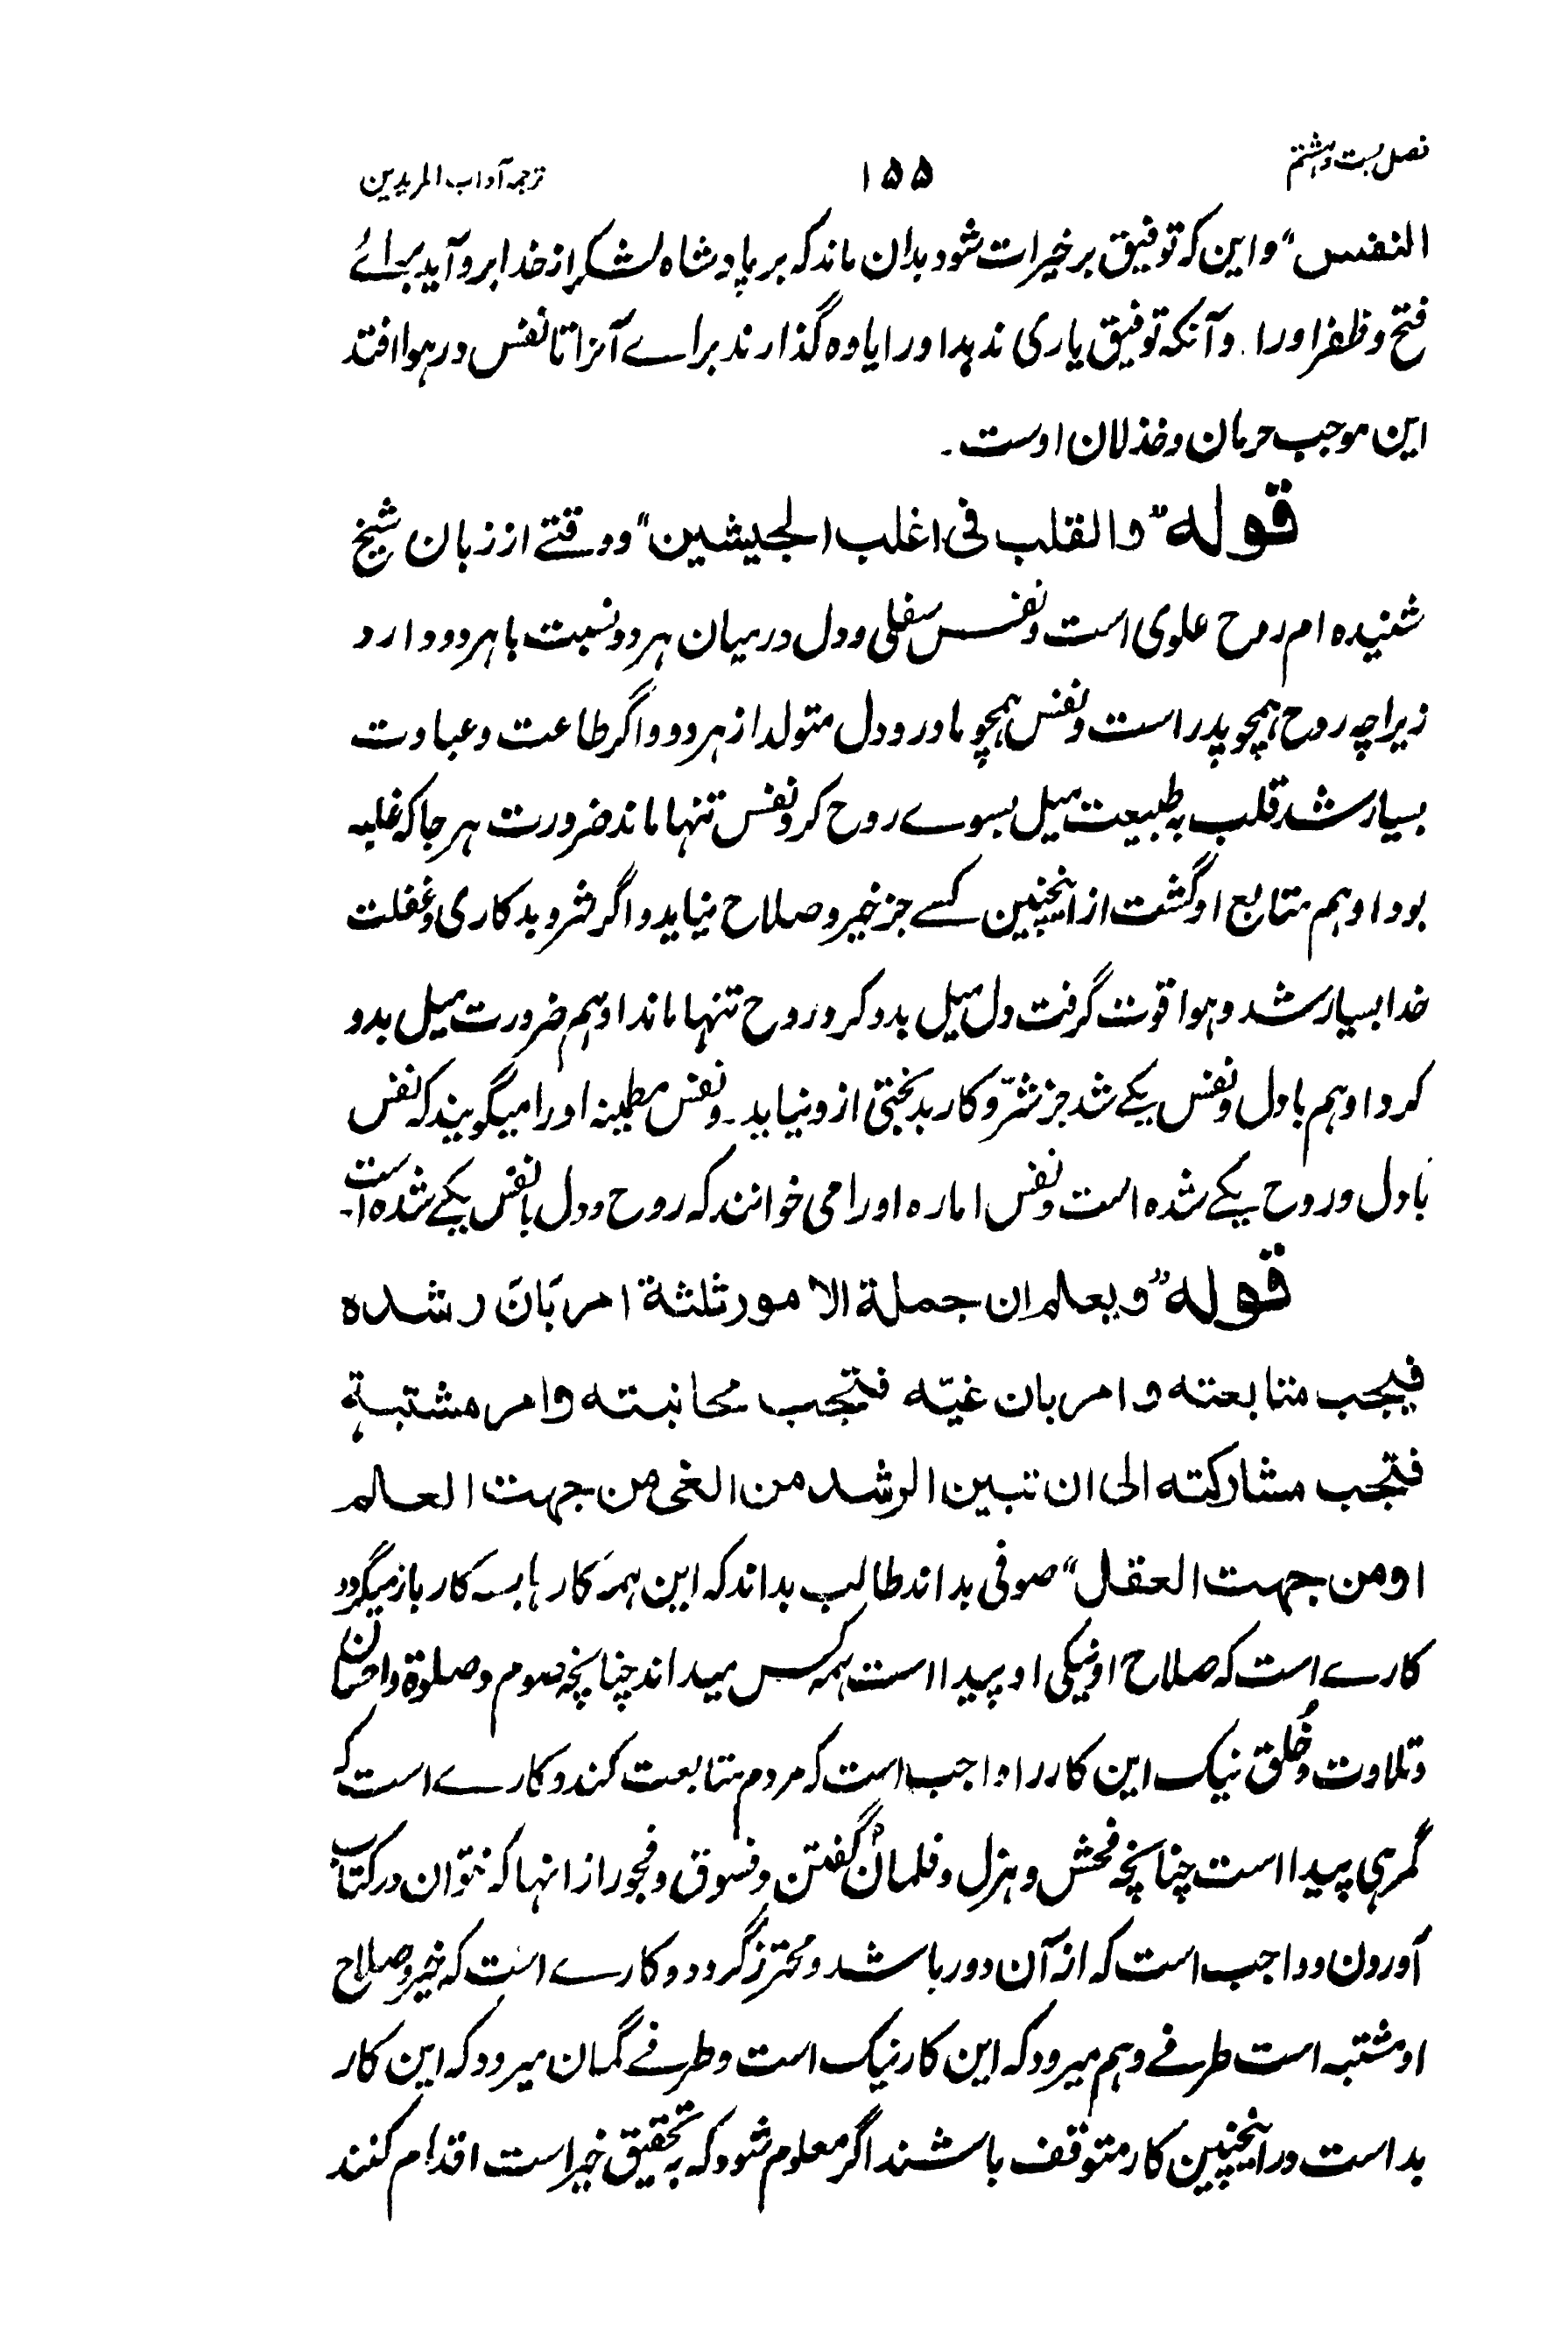 فصل بست و هشتم
۱۵۵
ترجمہ آداب المریدین
النفس" و این کہ توفیق بر خیرات شود بدان ماند کہ بر پادشاہ لشکر از خدا برو آید برائے
فتح و ظفر او را . و آنکہ توفیق یاری ندہد او را یاوہ گذارند براے آنرا تا نفس در ہوا افتد
این موجب حرمان و خذلان اوست ۔
قولہ "والقلب فی اغلب الجیشین" و وقتے از زبان شیخ
شنیدہ ام روح علوی است و نفس سفلی و دل درمیان ہر دو نسبت با ہر دو دارد
زیراچہ روح ہمچو پدر است و نفس ہمچو مادر و دل متولد از ہر دو و اگر طاعت و عبادت
بسیار شد قلب بہ طبیعت میل بسوے روح کرد نفس تنہا ماند ضرورت ہر جا کہ غلبہ
بود او ہم متابع او گشت از اینچنین کسے جز خیر و صلاح نیاید و اگر شر و بدکاری و غفلت
خدا بسیار شد و ہوا قوت گرفت دل میل بدو کرد و روح تنہا ماند او ہم ضرورت میل بدو
کرد او ہم با دل و نفس یکے شد جز شرّ و کار بدبختی ازو نیاید ۔ و نفس مطمینہ او را میگویند کہ نفس
با دل و روح یکے شدہ است و نفس امارہ او را می خوانند کہ روح و دل با نفس یکے شدہ است ۔
قولہ "و یعلم ان جملة الامور ثلثة امر بَانَ رشدہ
فیجب متابعتہ و امر بان غیّہ فتجب مجانبتہ و امر مشتبہة
فتجب مشارکتہ الی ان تبین الرشد من الغی من جہت العلم
او من جہت العقل" صوفی بداند طالب بداند کہ این ہمہ کارہا بسہ کار باز میگردد
کارے است کہ صلاح او نیکی او پیدا است ہمہ کس میداند چنانچہ صوم و صلوة و احسان
و تلاوت و خُلق نیک این کار را واجب است کہ مردم متابعت کند و کارے است کہ
گمرہی پیدا است چنانچہ فحش و ہزل و فلمان گفتن و فسوق و فجور از انہا کہ نتوان در کتاب
آوردن و واجب است کہ از آن دور باشد و محترز گردد و کارے است کہ خیر و صلاح
او مشتبہ است طرفے وہم میرود کہ این کار نیک است و طرفے گمان میرود کہ این کار
بد است در اینچنین کار متوقف باشند اگر معلوم شود کہ بہ تحقیق خیر است اقدام کنند